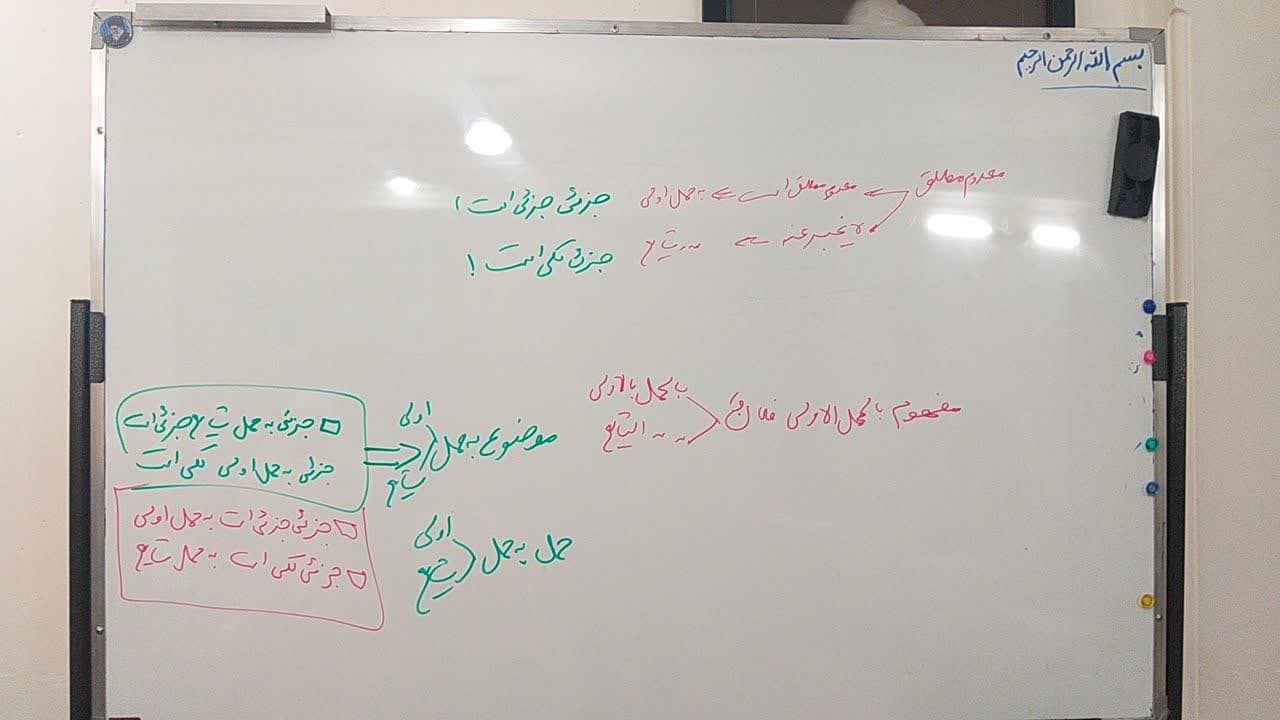 بسم الله الرحمن الرحیم
معدوم مطلق معدوم مطلق است به حمل اولی
لا یخبر عنه به شایع
جزئی جزئی است !
جزئی کلی است !
مفهوم بالحمل الاولی
بالحمل بالاولی
الشایع
موضوع به حمل اولی
شایع
جزئی به حمل شایع جزئی است
جزئی به حمل اولی کلی است
حمل به حمل اولی
شایع
جزئی جزئی است به حمل اولی
جزئی کلی است به حمل شایع